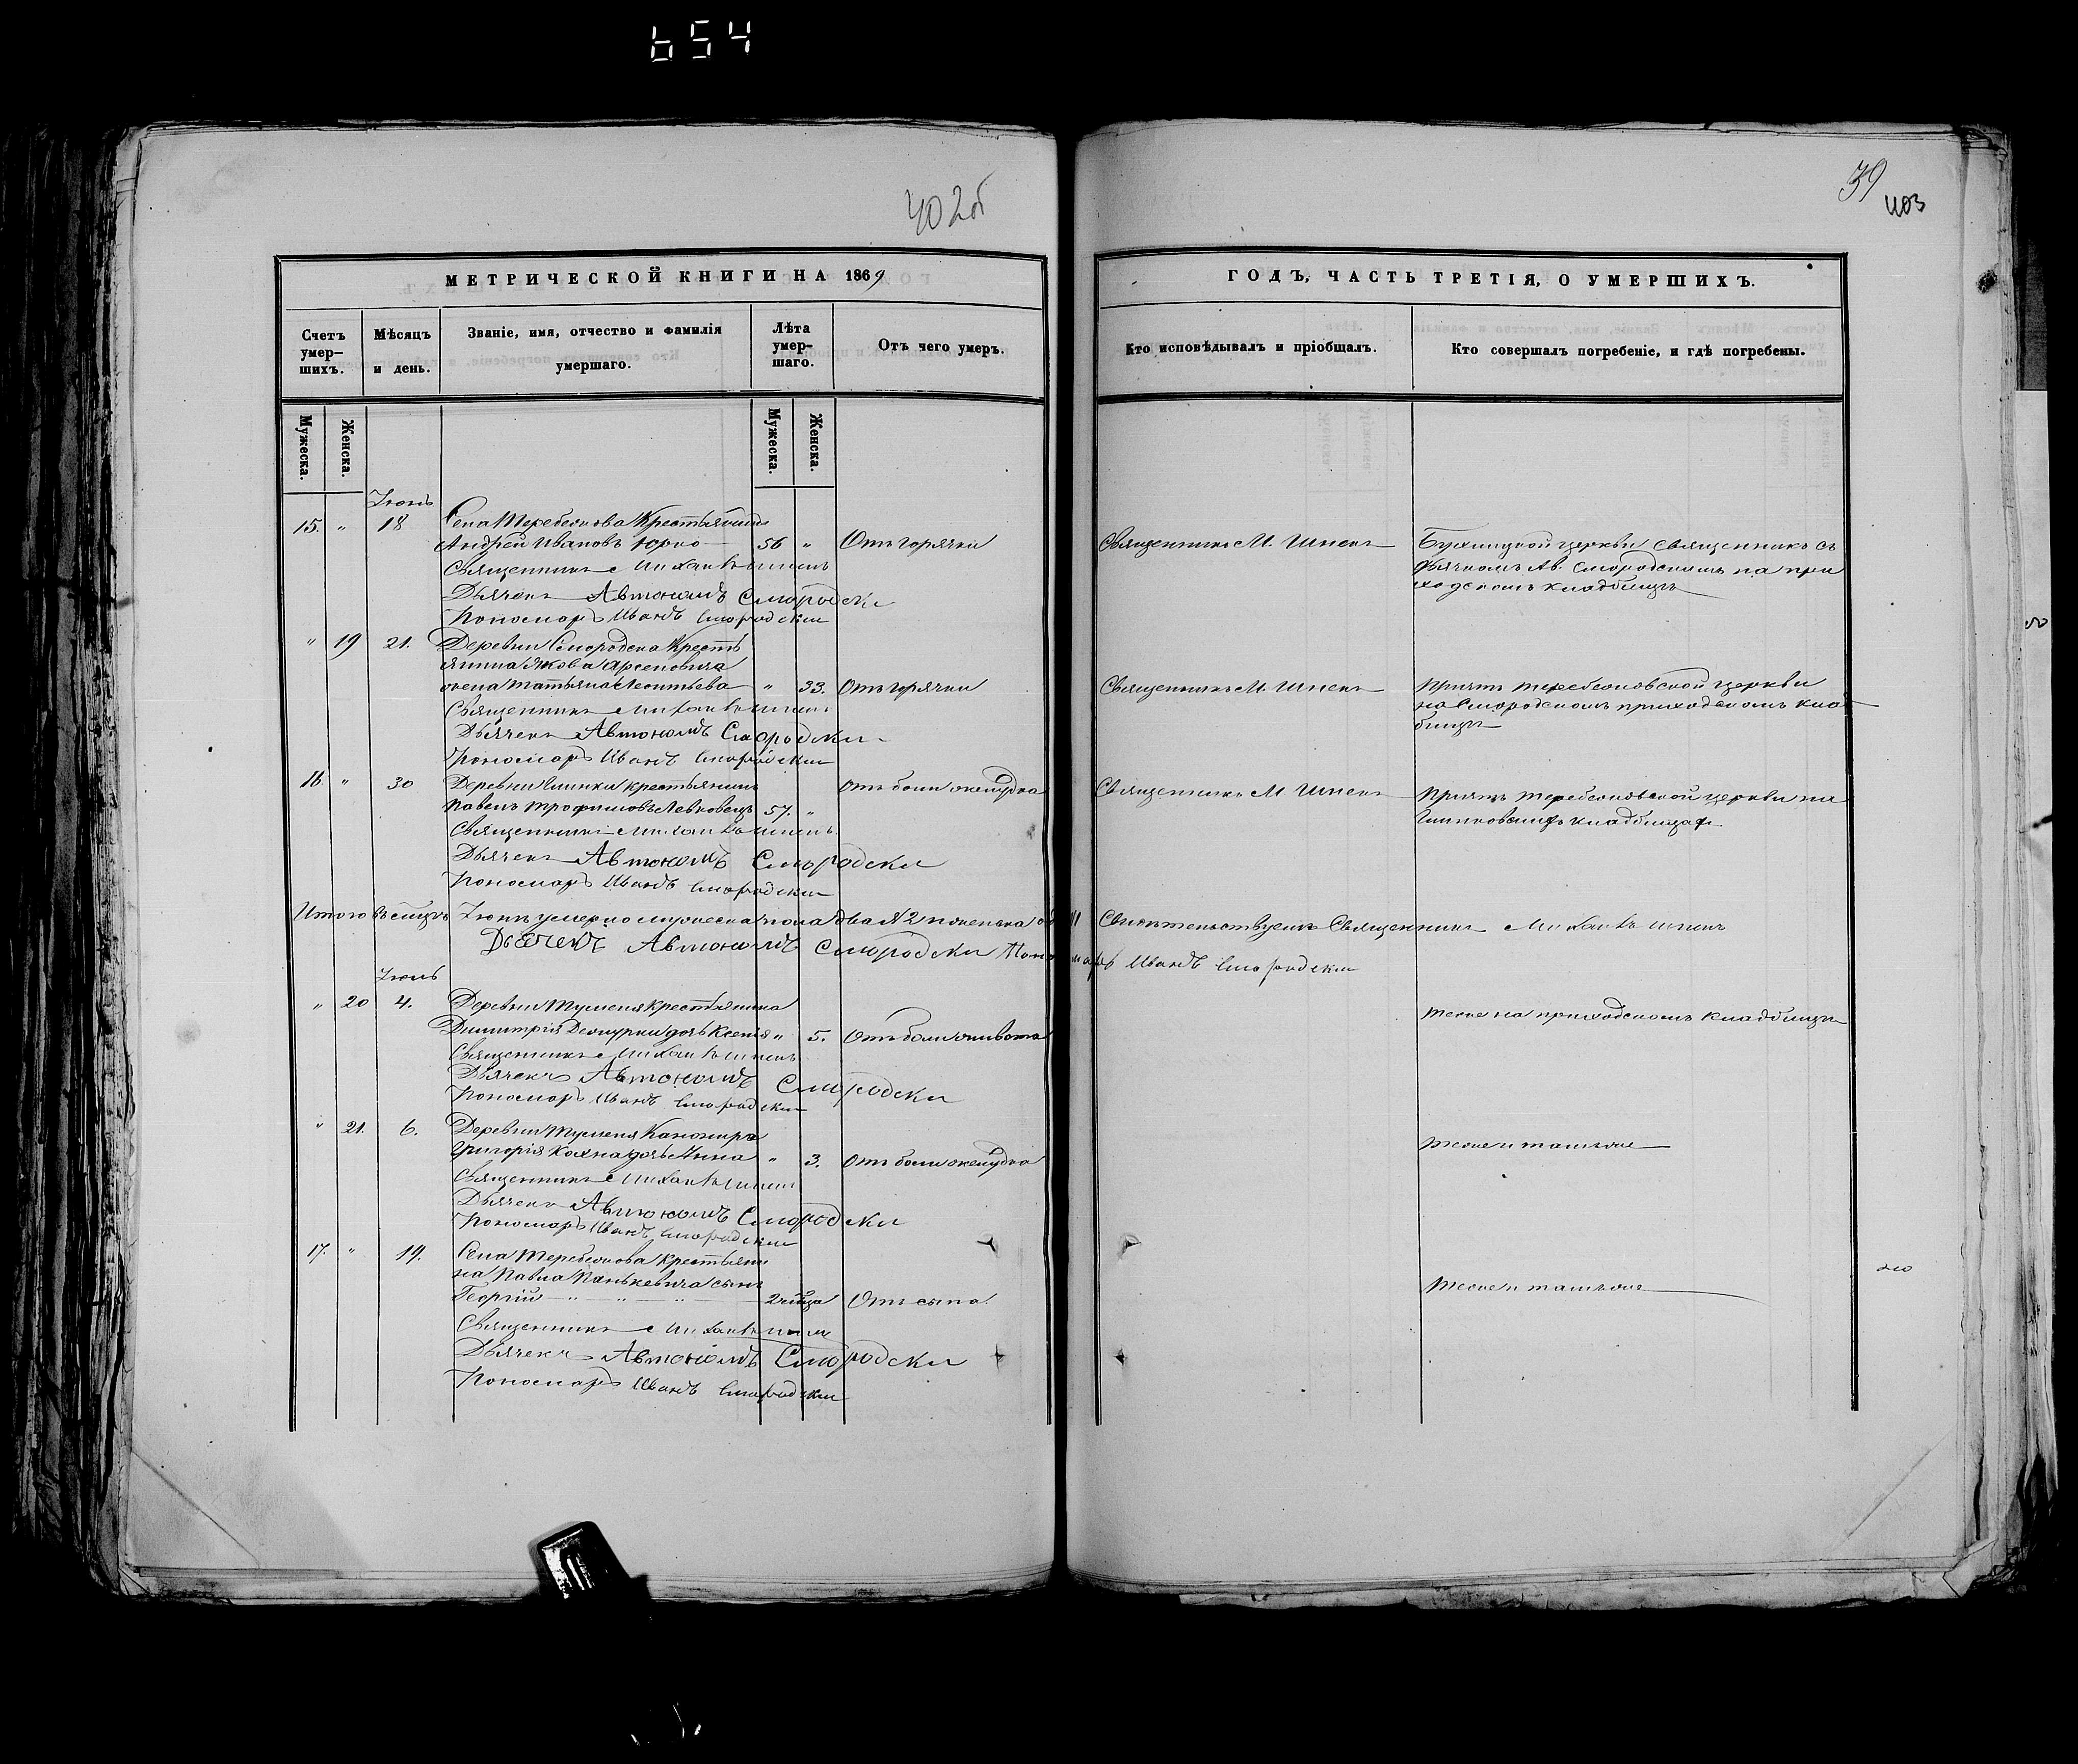 654
402б
39
403
МЕТРИЧЕСКОЙ КНИГИ НА 1869
ГОДЪ, ЧАСТЬ ТРЕТІЯ, О УМЕРШИХЪ.
Счетъ умер-
шихъ.
Мѣсяцъ
и день.
Званіе, имя, отчество и фамилія
умершаго.
Лѣта
умер-
шаго.
Отъ чего умеръ.
Кто исповѣдывалъ и пріобщалъ.
Кто совершалъ погребеніе, и гдѣ погребены.
Мужеска.
Женска.
Мужеска.
Женска.
Іюнь
15. " 18 Села Теребежова Крестьянинъ
Андрей Ивановъ Юрко 56 " Отъ горячки
Священникъ М. Шпенъ
церкви священникъ съ
дьячкомъ Ав. Смородскимъ на при
ходскомъ кладбищѣ
Священникъ Михаилъ Шпенъ
Дьячекъ Автономъ Смородски
Пономарь Иванъ Смородски
" 19 21. Деревни Смородска Кресть
янина Якова Арсеновича
жена Татьяна Леонтьева " 33. Отъ горячки
Священникъ М. Шпенъ
Причтъ Теребежовской церкви
на Смородскомъ приходскомъ клад
бищѣ
Священникъ Михаилъ Шпенъ
Дьячекъ Автономъ Смородски
Пономарь Иванъ Смородски
16. " 30 Деревни Глинки крестьянинъ
Павелъ Трофимовъ Левковецъ 57. "
Отъ боли желудка
Священникъ М Шпенъ
Причтъ Теребежовской церкви на
Глинковскихъ кладбищахъ
Священникъ Михаилъ Шпенъ
Дьячекъ Автономъ Смородски
Пономарь Иванъ Смородски
Итого въ мѣсяцѣ Іюнѣ умерло мужеска пола два 2 женска
Свидѣтельствуемъ Священникъ Михаилъ Шпенъ
Дьячекъ Автономъ Смородски Пономарь Иванъ Смородски
Іюль
" 20 4. Деревни Туменя крестьянина
Димитрія дочь Ксенія " 5. Отъ боли живота
Тоже на приходскомъ кладбищѣ
Священникъ Михаилъ Шпенъ
Дьячекъ Автономъ Смородски
Пономарь Иванъ Смородски
" 21. 6. Деревни Туменя
Григорія Кохна дочь Анна " 3. Отъ боли желудка
Тоже и тамъже
Священникъ Михаилъ Шпенъ
Дьячекъ Автономъ Смородски
Пономарь Иванъ Смородски
17. " 19. Села Теребежова крестьяни
на Павла Панькевича сынъ
Георгій " " " 2 мѣсяца Отъ
Тоже и тамъже
Священникъ Михаилъ Шпенъ
Дьячекъ Автономъ Смородски
Пономарь Иванъ Смородски